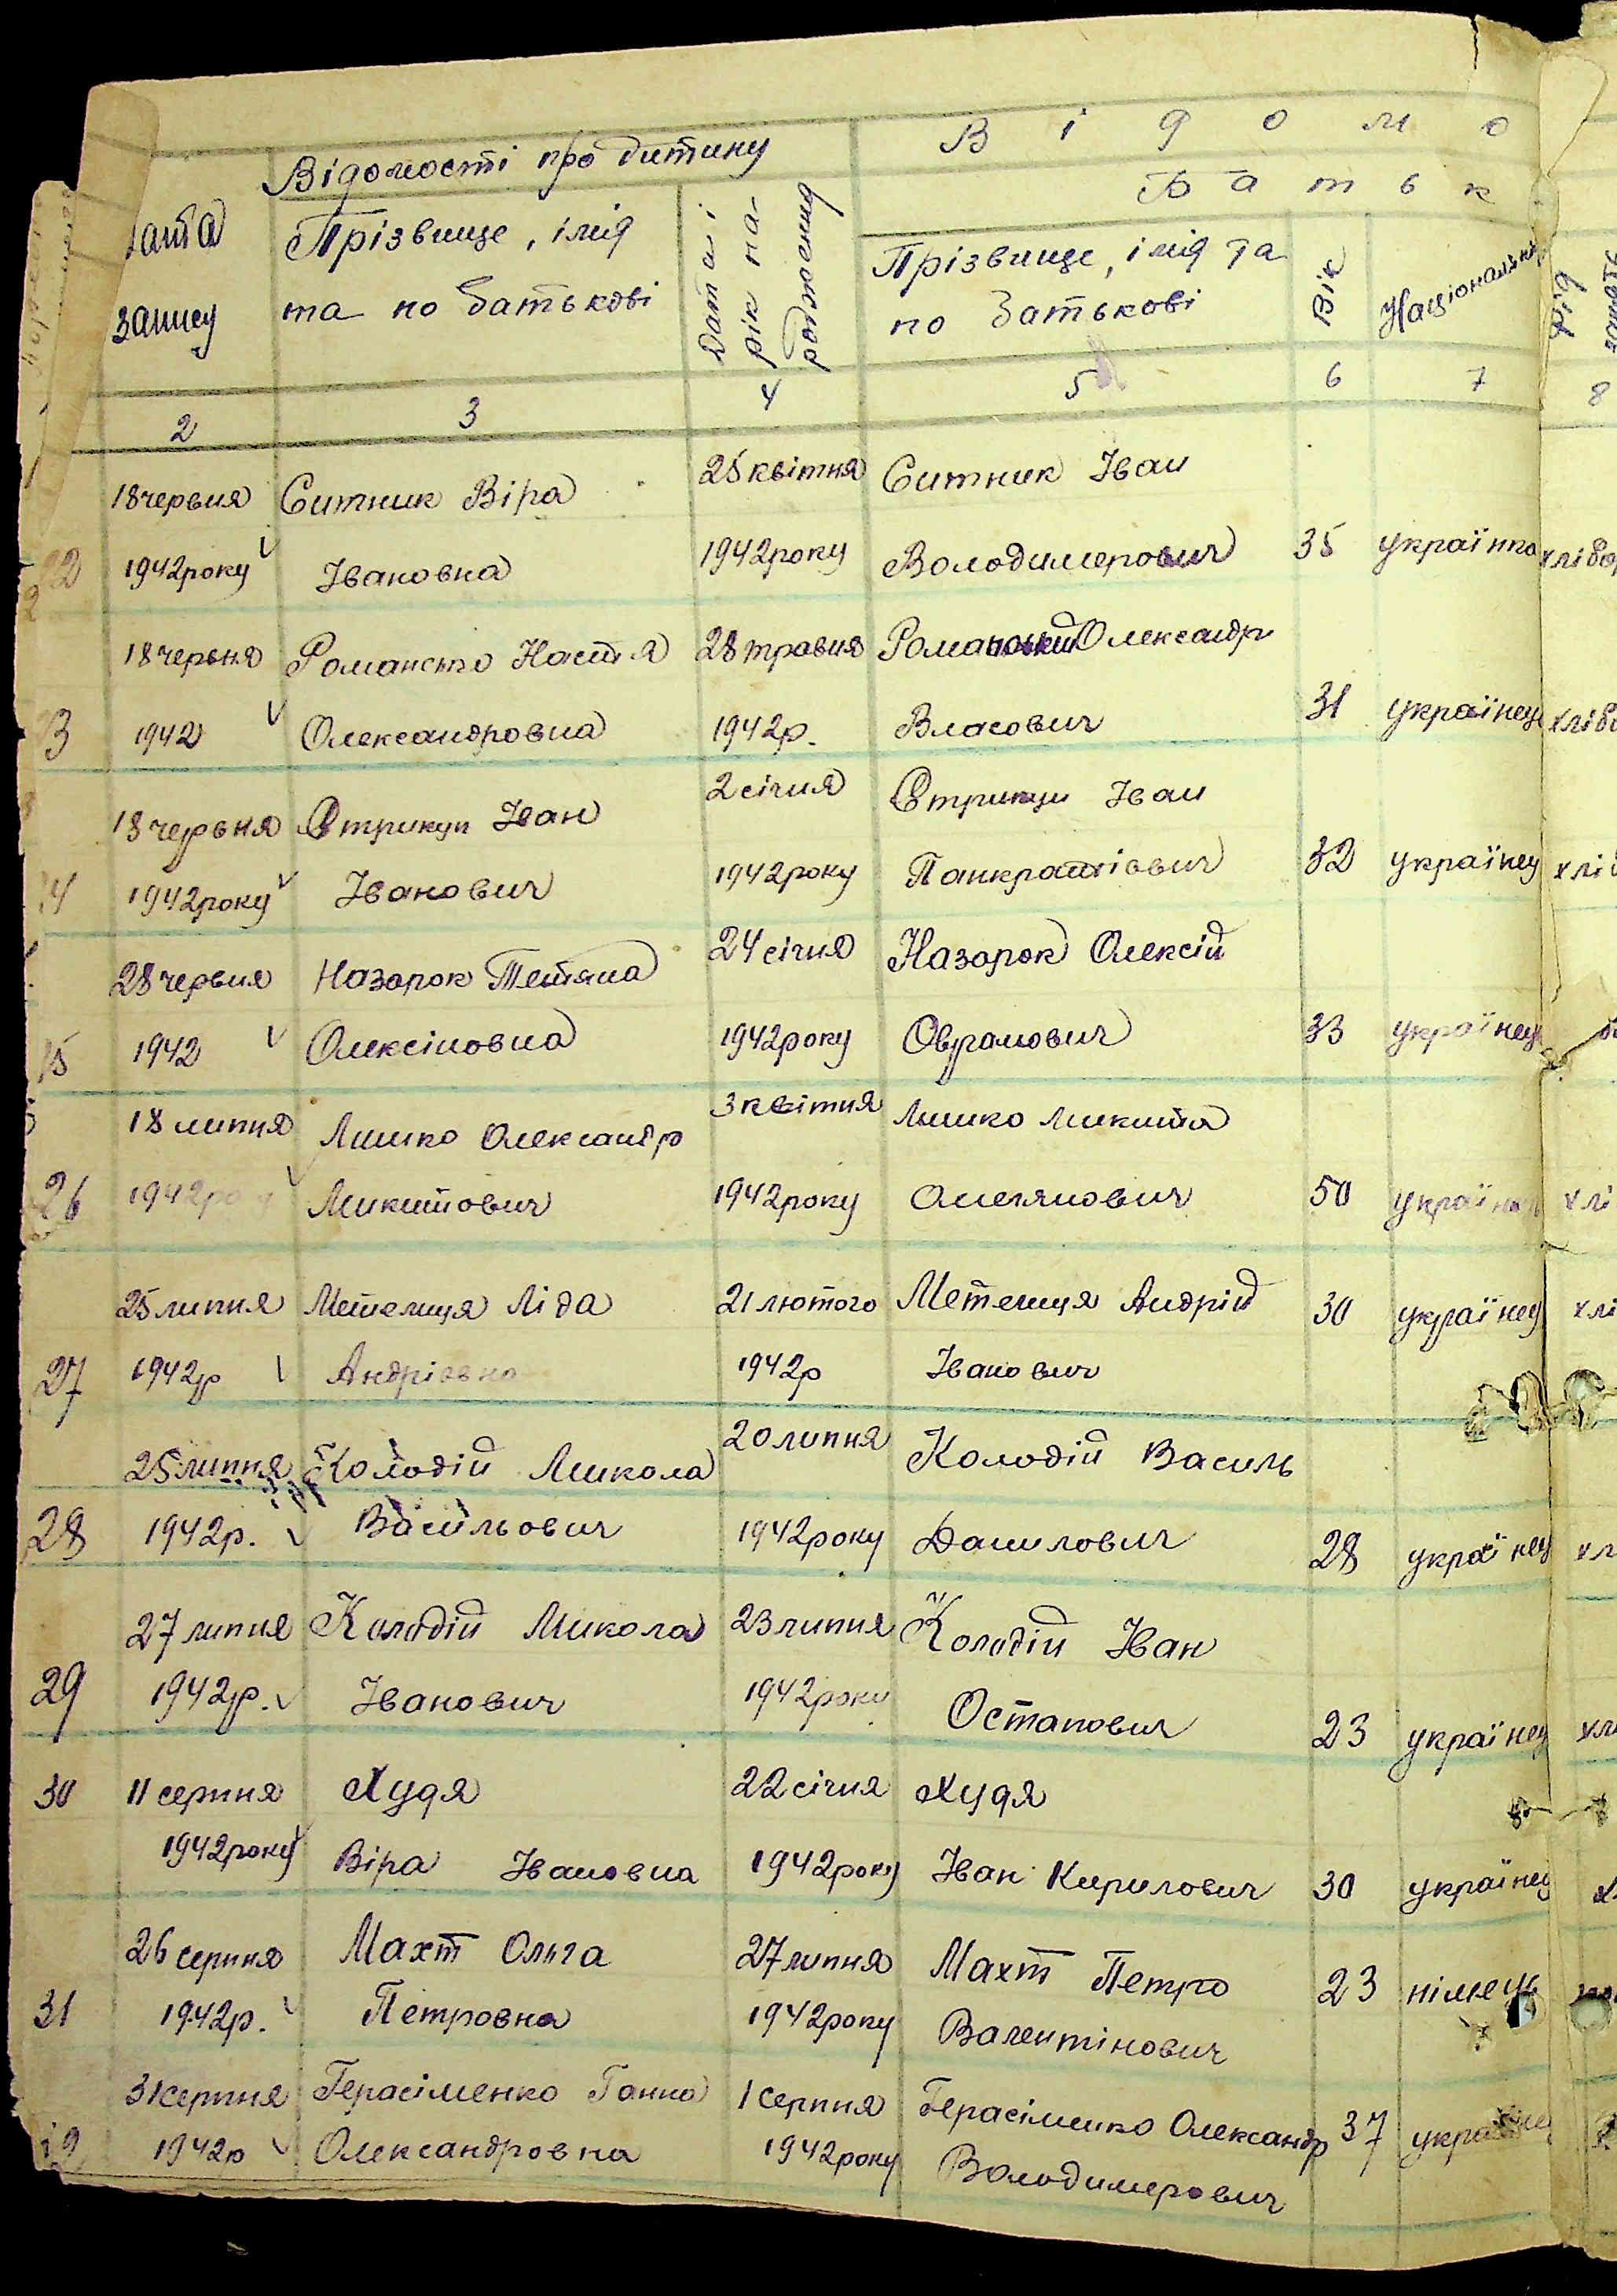 В і д о м о
Відомості про дитину
Б а т ь к
Дата запису
Прізвище, імія та по батькові
Дата і рік народження
Прізвище, імія та по батькові
Вік
Національн
Рід
2 3 4 5 6 7 8
18 червня Ситник Віра 25 квітня Ситник Іван
22 1942 року Івановна 1942 року Володимерович 35 українка хлібо
18 червня Настя 28 травня Олександр
23 1942 Олександровна 1942 р. Власович 31 українец хліб
18 червня Стрикун Іван 2 січня Стрикун Іван
24 1942 року Іванович 1942 року Панкратіович 32 українец хлі
28 червня Назарок Тетяна 24 січня Назарок Олексій
25 1942 Олексіновна 1942 року Оврамович 33 українец
18 липня Лишко Олександр 3 квітня Лишко Микита
26 1942 року Микитович 1942 року Омелянович 50 хлі
25 липня Метелиця Ліда 21 лютого Метелиця Андрій 30 українец хлі
27 1942 р Андріовна 1942 р Іванович
25 липня Колодій Микола 20 липня Колодій Василь
28 1942 р. Васильович 1942 року Данилович 28 українец хл
27 липня Колодій Микола 23 липня Колодій Іван
29 1942 р. Іванович 1942 року Остапович 23 українец хл
30 11 серпня Худя 22 січня Худя
1942 року Віра Івановна 1942 року Іван Кирилович 30 українец х
26 серпня Махт Ольга 27 липня Махт Петро 23 німець
31 1942 р. Петровна 1942 року Валентінович
31 серпня Герасіменко Ганна 1 серпня Герасіменко Олександр 37
1942 р Олександровна 1942 року Володимерович